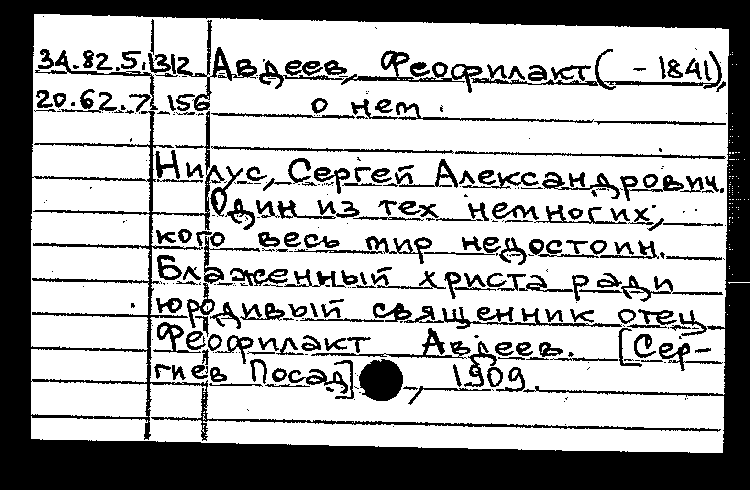 34.82.5.312 Авдеев, Феофилакт ( -1841),
20.62.7.156 о нем.
Нилус, Сергей Александрович.
Один из тех немногих,
кого весь мир недостоин.
Блаженный христа ради
юродивый священник отец
Феофилакт Авдеев. [Сер-
гиев Посад], 1909.